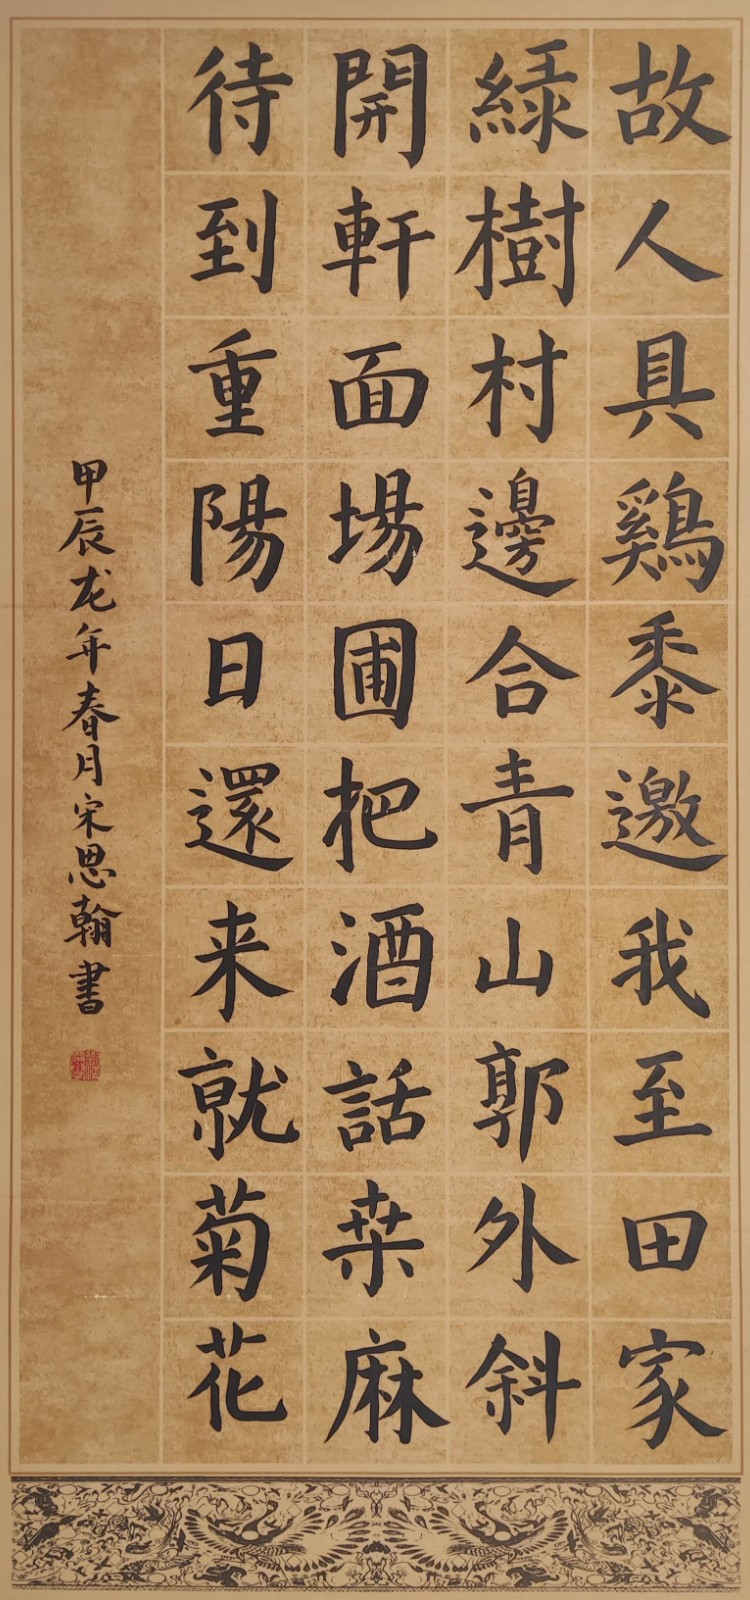 故人具鷄黍邀我至田家
綠樹村邊合青山郭外斜
開軒面場圃把酒話桒麻
待到重陽日還来就菊花
甲辰龙年春月宋思翰書